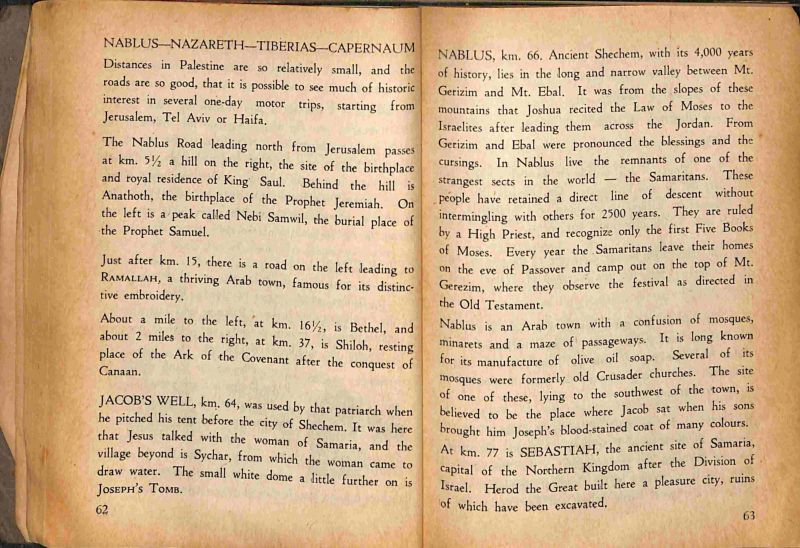 NABLUS—NAZARETH—TIBERIAS—CAPERNAUM
Distances in Palestine are so relatively small, and the
roads are so good, that it is possible to see much of historic
interest in several one-day motor trips, starting from
Jerusalem, Tel Aviv or Haifa.
The Nablus Road leading north from Jerusalem passes
at km. 5½ a hill on the right, the site of the birthplace
and royal residence of King Saul. Behind the hill is
Anathoth, the birthplace of the Prophet Jeremiah. On
the left is a peak called Nebi Samwil, the burial place of
the Prophet Samuel.
Just after km. 15, there is a road on the left leading to
RAMALLAH, a thriving Arab town, famous for its distinc-
tive embroidery.
About a mile to the left, at km. 16½, is Bethel, and
about 2 miles to the right, at km. 37, is Shiloh, resting
place of the Ark of the Covenant after the conquest of
Canaan.
JACOB'S WELL, km. 64, was used by that patriarch when
he pitched his tent before the city of Shechem. It was here
that Jesus talked with the woman of Samaria, and the
village beyond is Sychar, from which the woman came to
draw water. The small white dome a little further on is
JOSEPH'S TOMB.
62
NABLUS, km. 66. Ancient Shechem, with its 4,000 years
of history, lies in the long and narrow valley between Mt.
Gerizim and Mt. Ebal. It was from the slopes of these
mountains that Joshua recited the Law of Moses to the
Israelites after leading them across the Jordan. From
Gerizim and Ebal were pronounced the blessings and the
cursings. In Nablus live the remnants of one of the
strangest sects in the world — the Samaritans. These
people have retained a direct line of descent without
intermingling with others for 2500 years. They are ruled
by a High Priest, and recognize only the first Five Books
of Moses. Every year the Samaritans leave their homes
on the eve of Passover and camp out on the top of Mt.
Gerezim, where they observe the festival as directed in
the Old Testament.
Nablus is an Arab town with a confusion of mosques,
minarets and a maze of passageways. It is long known
for its manufacture of olive oil soap. Several of its
mosques were formerly old Crusader churches. The site
of one of these, lying to the southwest of the town, is
believed to be the place where Jacob sat when his sons
brought him Joseph's blood-stained coat of many colours.
At km. 77 is SEBASTIAH, the ancient site of Samaria,
capital of the Northern Kingdom after the Division of
Israel. Herod the Great built here a pleasure city, ruins
of which have been excavated.
63